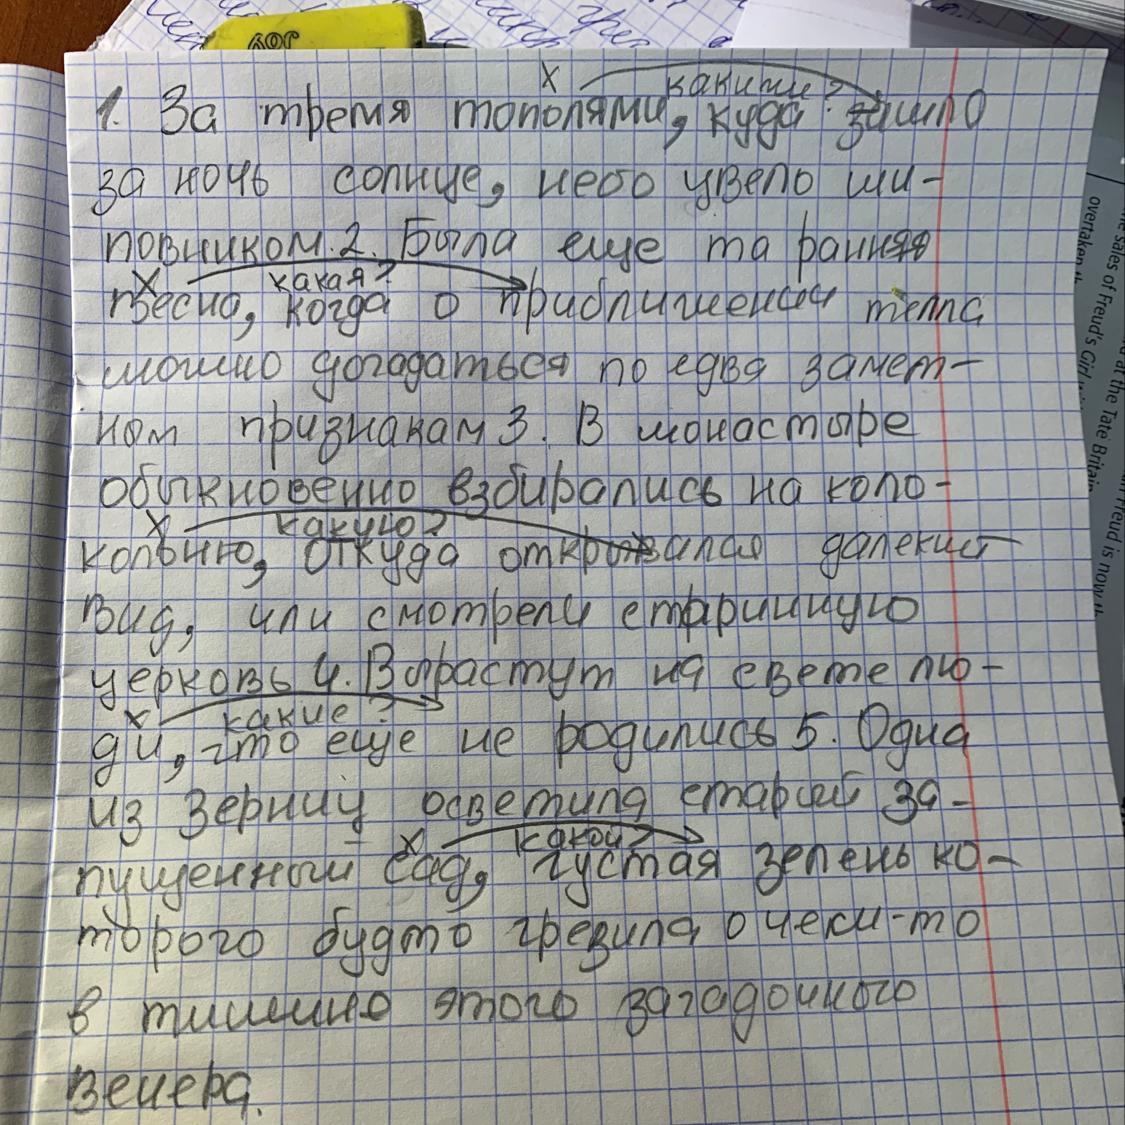 дог
какими?
1. За тремя тополями, куда зашло
за ночь солнце, небо цвело ши-
повником. 2. Была еще та ранняя
какая?
весна, когда о приближении тепла
можно догадаться по едва замет-
ном признакам 3. В монастыре
обыкновенно взбирались на коло-
какую?
кольню, откуда открывался далекий
вид, или смотрели старинную
церковь 4. Возрастут на свете лю-
какие?
ди, что еще не родились 5. Одна
из зерниц осветила старый за-
какой?
пущенный сад, густая зелень ко-
торого будто грезила о чеки-то
в тишине этого загадочного
вечера.
overtaken
he sales of Freud's Girl
at the Tate Britain
Freud is now